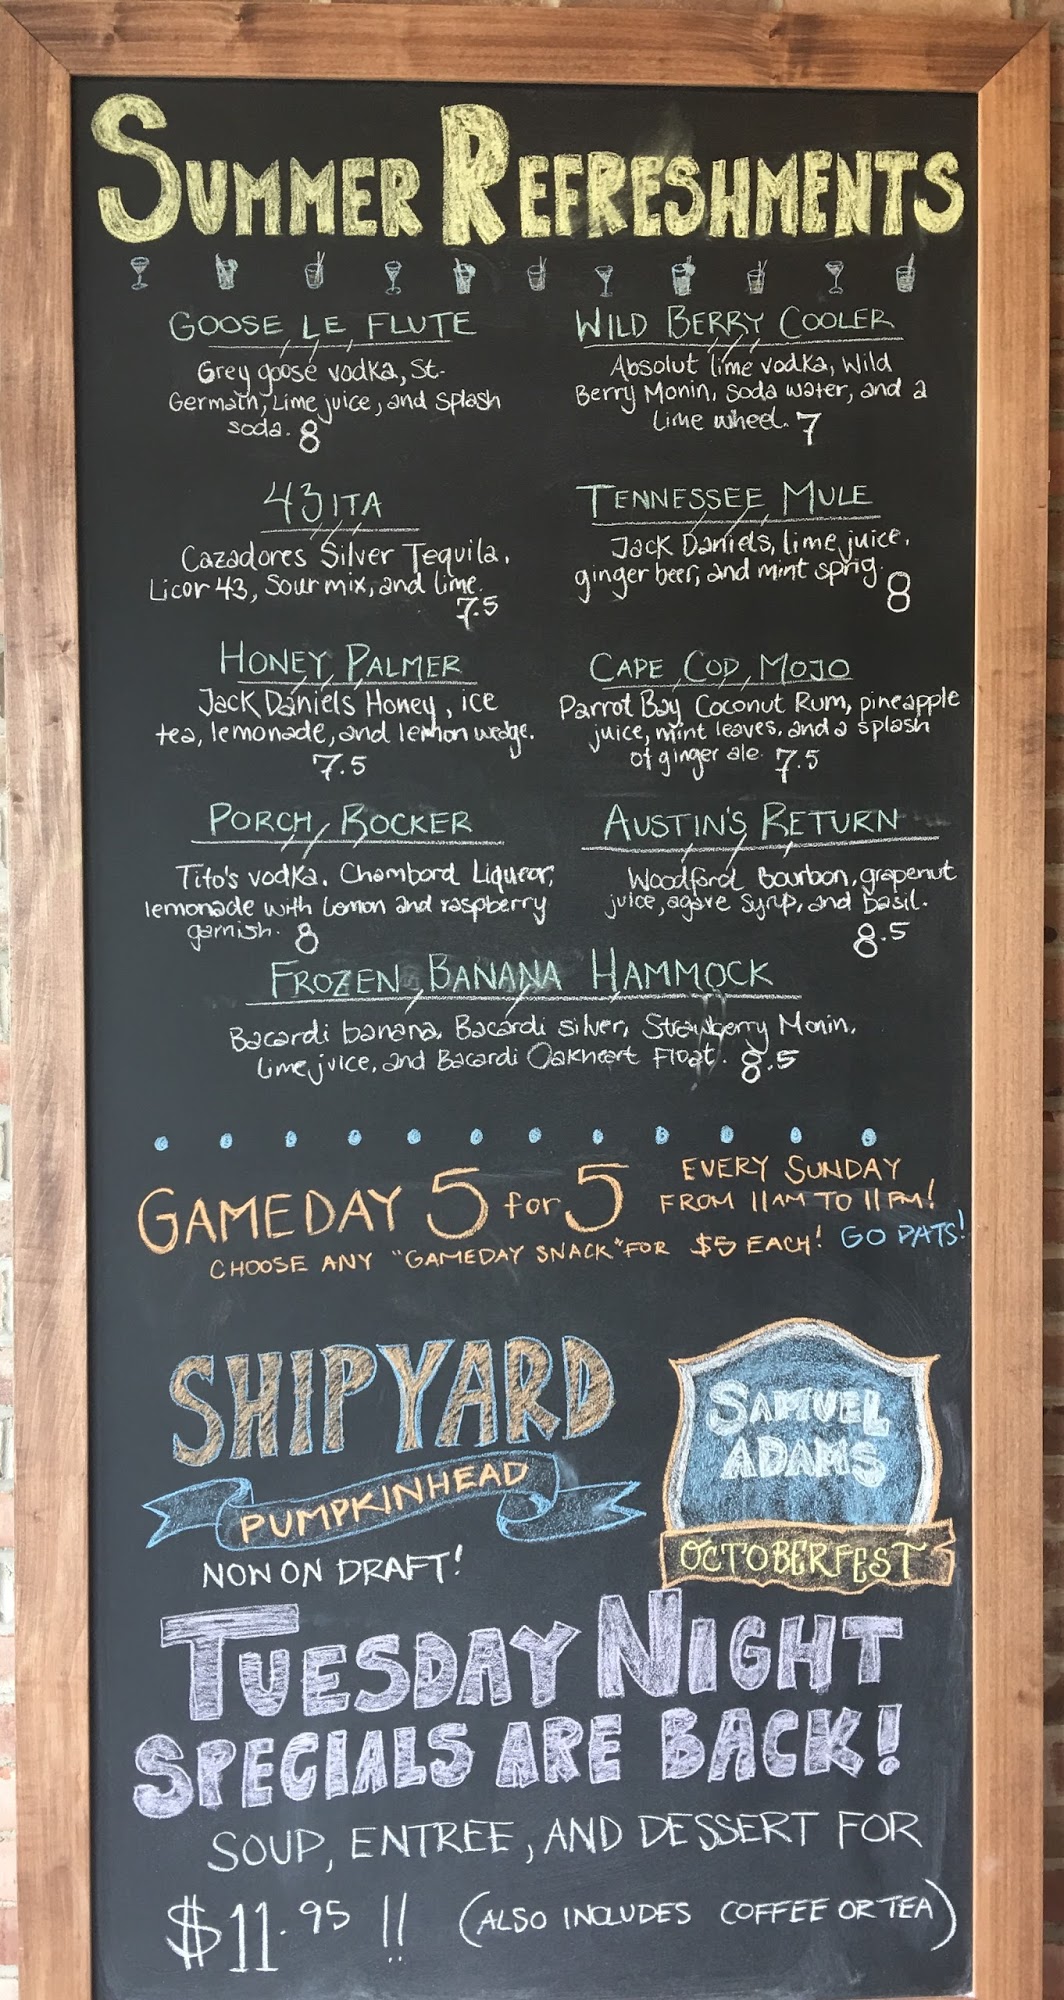 SUMMER REFRESHMENTS
GOOSE LE FLUTE
Grey goose vodka, St.
Germain, Lime juice, and splash
soda. 8
WILD BERRY COOLER
Absolut lime vodka, Wild
Berry Monin, soda water, and a
Lime wheel. 7
43ITA
Cazadores Silver Tequila,
Licor 43, Sour mix, and lime.
7.5
TENNESSEE MULE
Jack Daniels, lime juice,
ginger beer, and mint sprig.
8
HONEY PALMER
Jack Daniels Honey, ice
tea, lemonade, and lemon wedge.
7.5
CAPE COD MOJO
Parrot Bay Coconut Rum, pineapple
juice, mint leaves, and a splash
of ginger ale. 7.5
PORCH ROCKER
Tito's vodka, Chambord Liqueor,
lemonade with Lemon and raspberry
garnish. 8
AUSTIN'S RETURN
Woodford Bourbon, grapenut
juice, agave syrup, and Basil.
8.5
FROZEN BANANA HAMMOCK
Bacardi banana, Bacardi silver, Strawberry Monin,
Lime juice, and Bacardi Oakheart Float. 8.5
GAMEDAY 5 for 5
EVERY SUNDAY
FROM 11AM TO 11PM!
CHOOSE ANY "GAMEDAY SNACK" FOR $5 EACH! GO PATS!
SHIPYARD
PUMPKINHEAD
NOW ON DRAFT!
SAMUEL
ADAMS
OCTOBERFEST
TUESDAY NIGHT
SPECIALS ARE BACK!
SOUP, ENTREE, AND DESSERT FOR
$11.95 !! (ALSO INCLUDES COFFEE OR TEA)